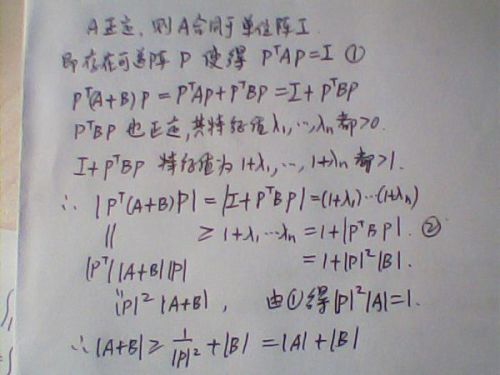 A正定，则A合同于单位阵I.
即存在可逆阵P使得 PᵀAP=I ①
Pᵀ(A+B)P=PᵀAP+PᵀBP=I+PᵀBP
PᵀBP也正定，其特征值λ₁,…,λn都>0.
I+PᵀBP 特征值为1+λ₁,…,1+λn都>1.
∴ |Pᵀ(A+B)P|=|I+PᵀBP|=(1+λ₁)…(1+λn)
|| ≥1+λ₁…λn=1+|PᵀBP|. ②
|Pᵀ||A+B||P| =1+|P|²|B|.
"|P|²|A+B|, 由①得|P|²|A|=1.
∴|A+B|≥1/|P|²+|B|=|A|+|B|